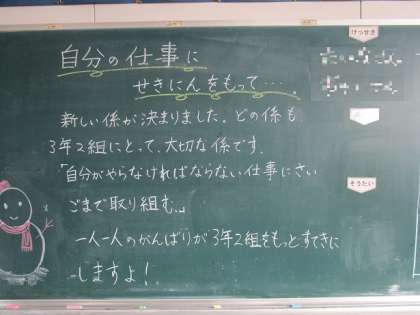 自分の仕事に
せきにんをもって….
新しい係が決まりました。どの係も
3年2組にとって、大切な係です。
「自分がやらなければならない仕事にさい
ごまで取り組む。」
一人一人のがんばりが3年2組をもっとすてきに
しますよ!
けっせき
そうたい